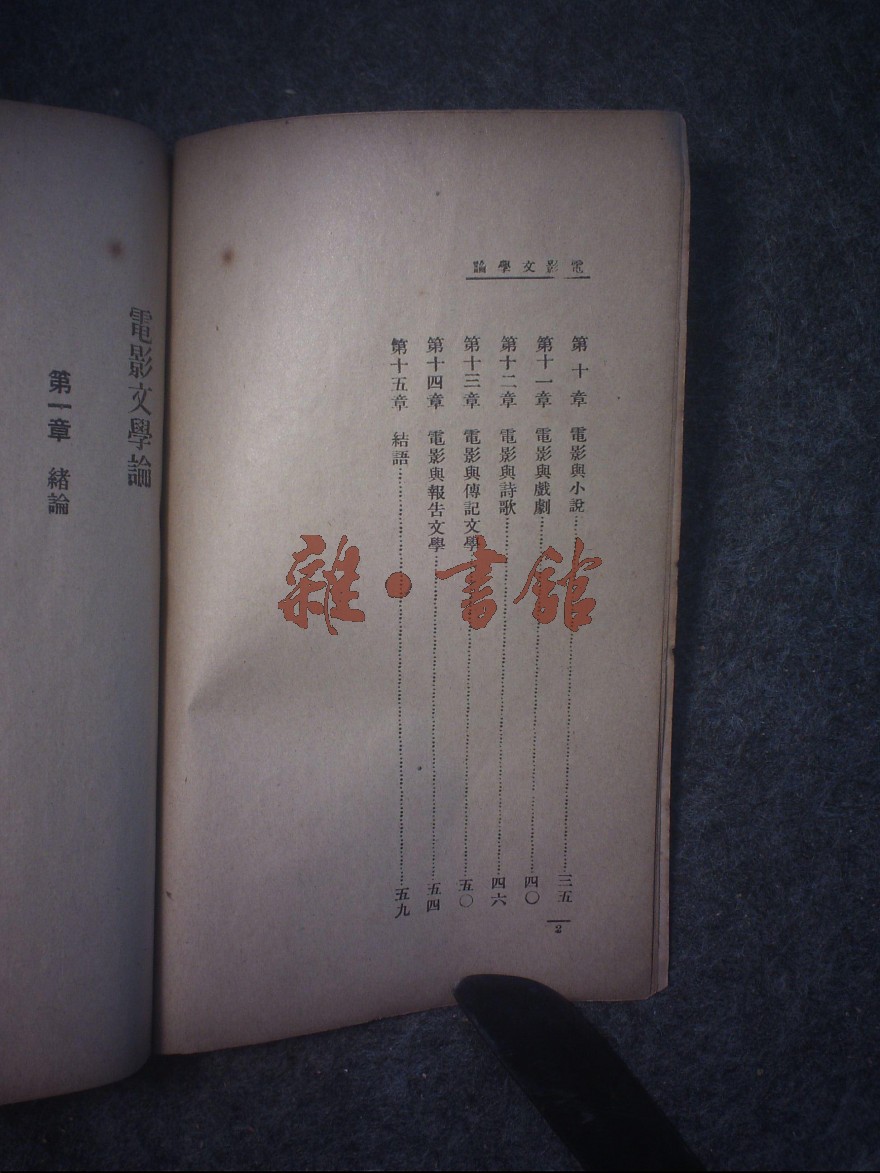 電影文學論
第十章 電影與小說……三五
第十一章 電影與戲劇……四〇
第十二章 電影與詩歌……四六
第十三章 電影與傳記文學……五〇
第十四章 電影與報告文學……五四
第十五章 結語……五九
2
電影文學論
第一章 緒論
雜·書館